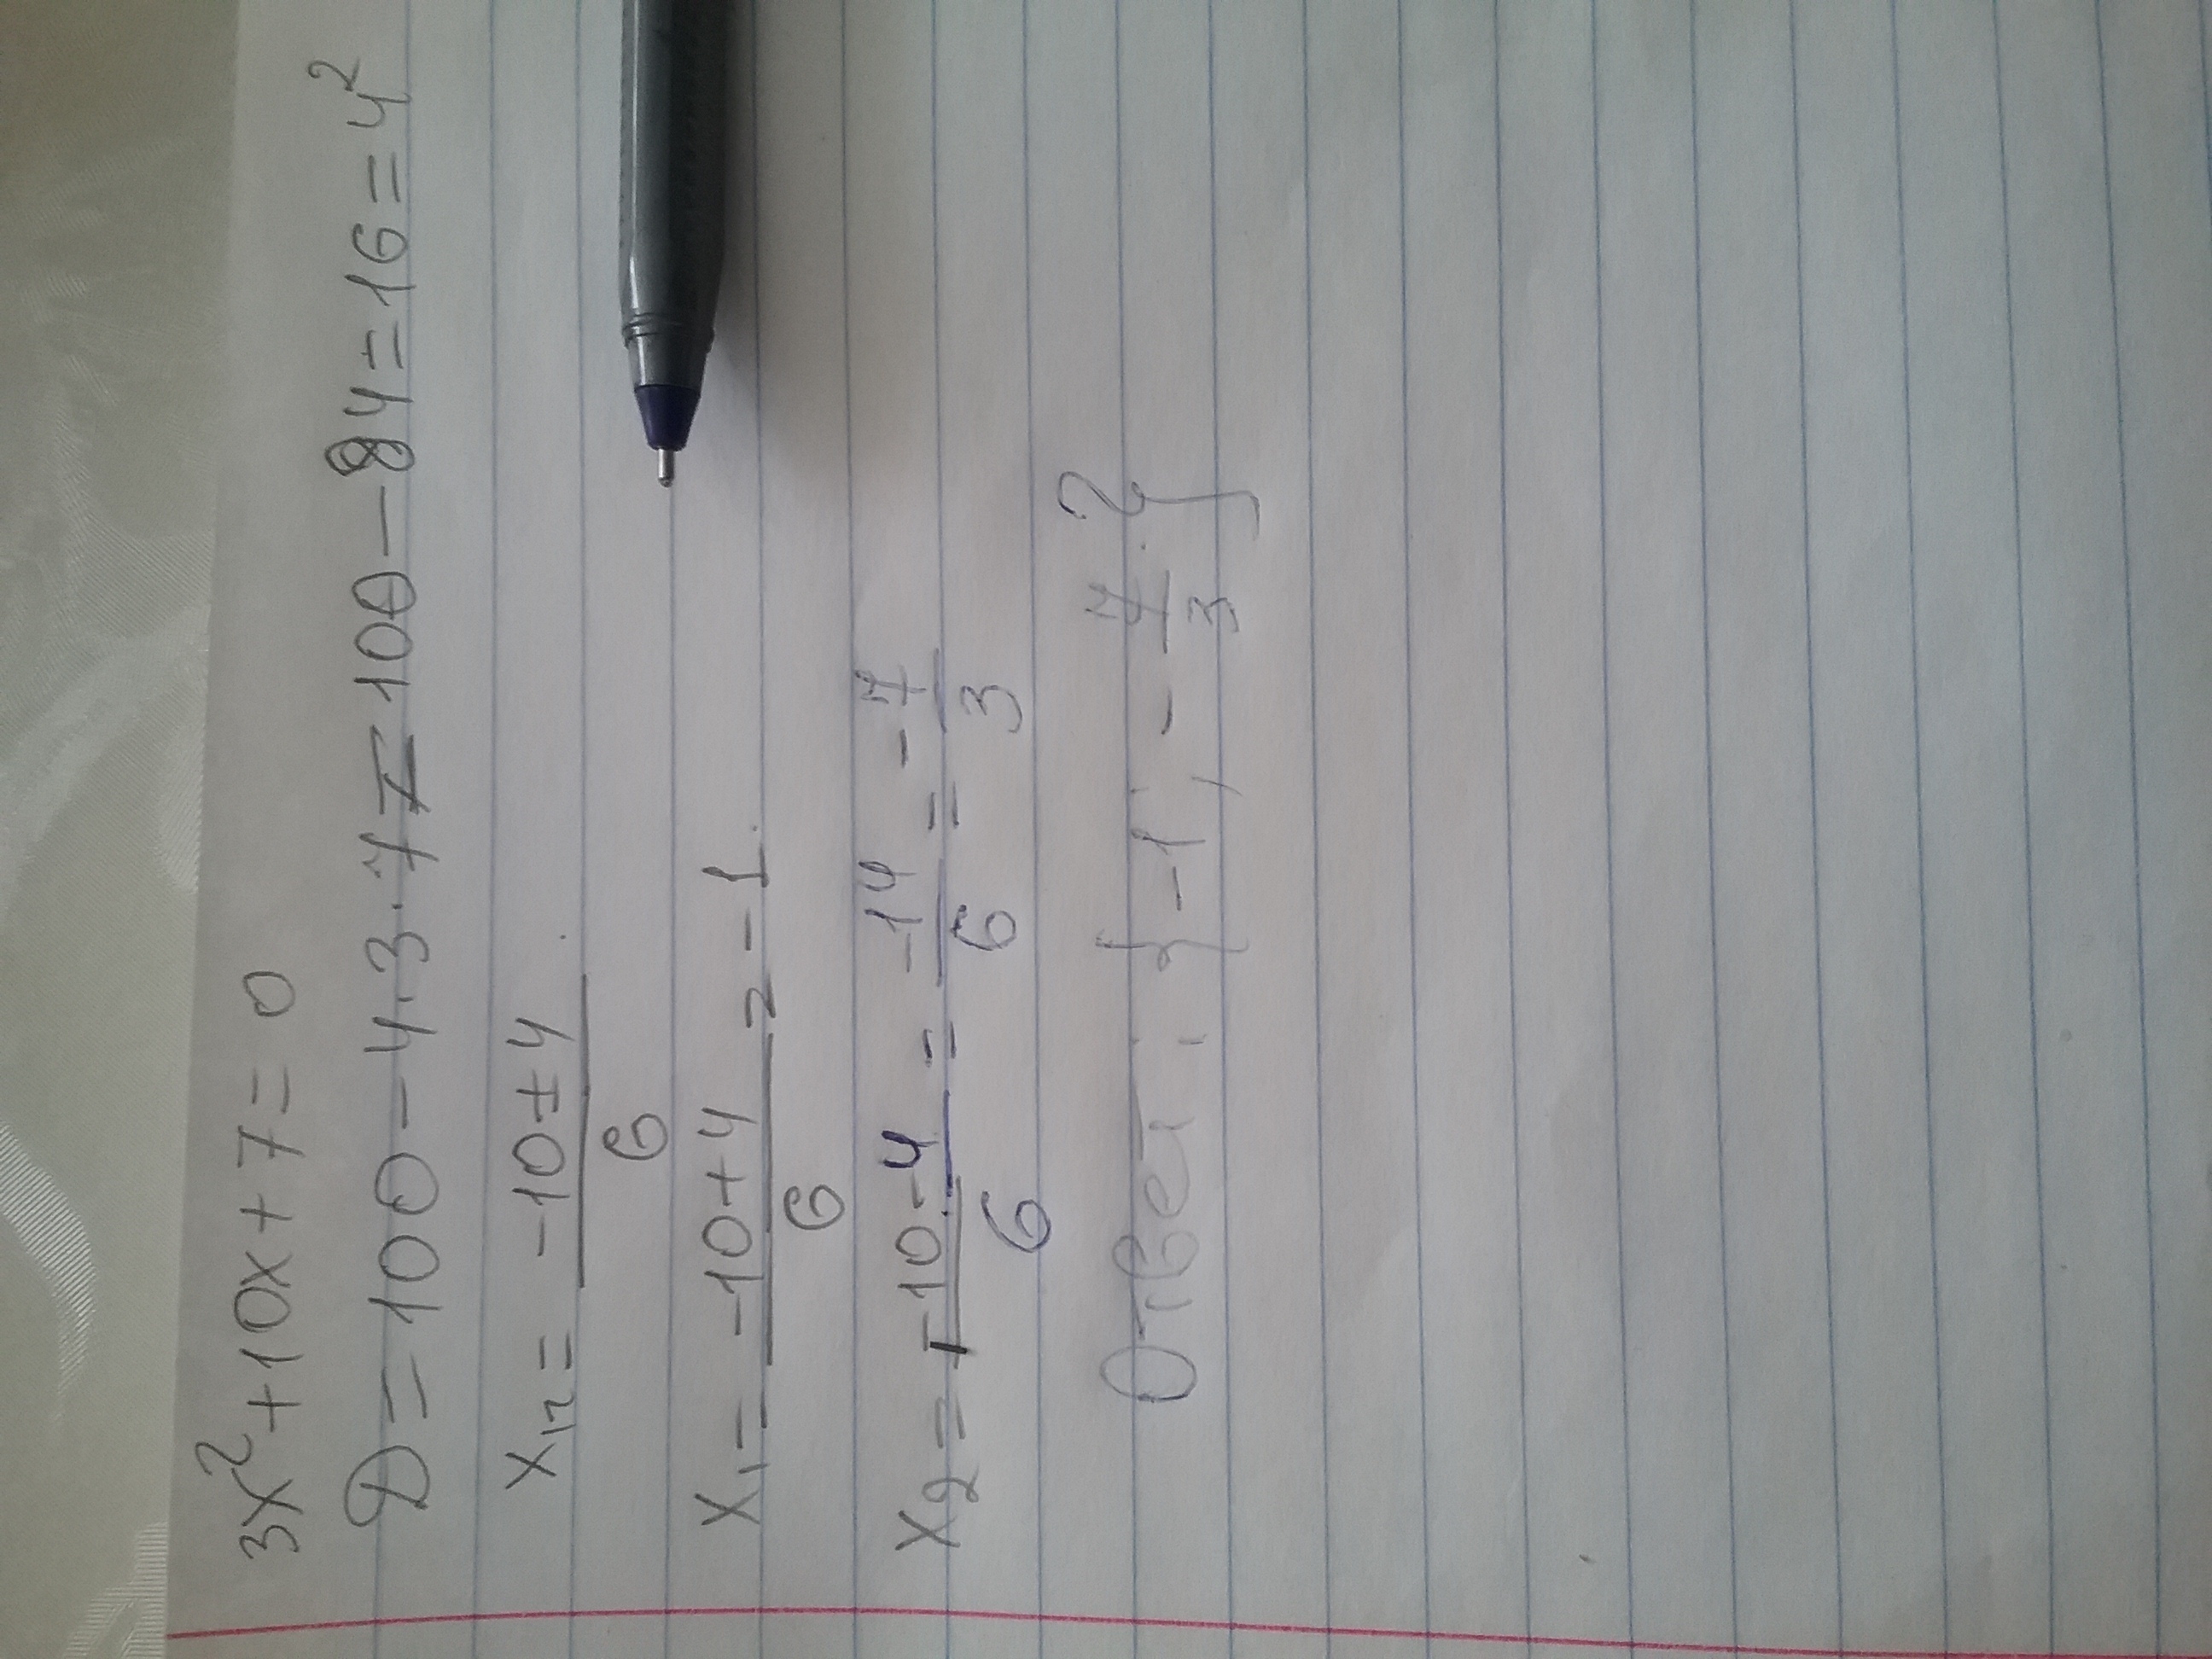 3x²+10x+7=0
D=100-4·3·7=100-84=16=4²
x₁₂=(-10±4)/6
x₁=(-10+4)/6=-1.
x₂=(-10-4)/6=-14/6=-7/3
Ответ: {-1; -7/3.}